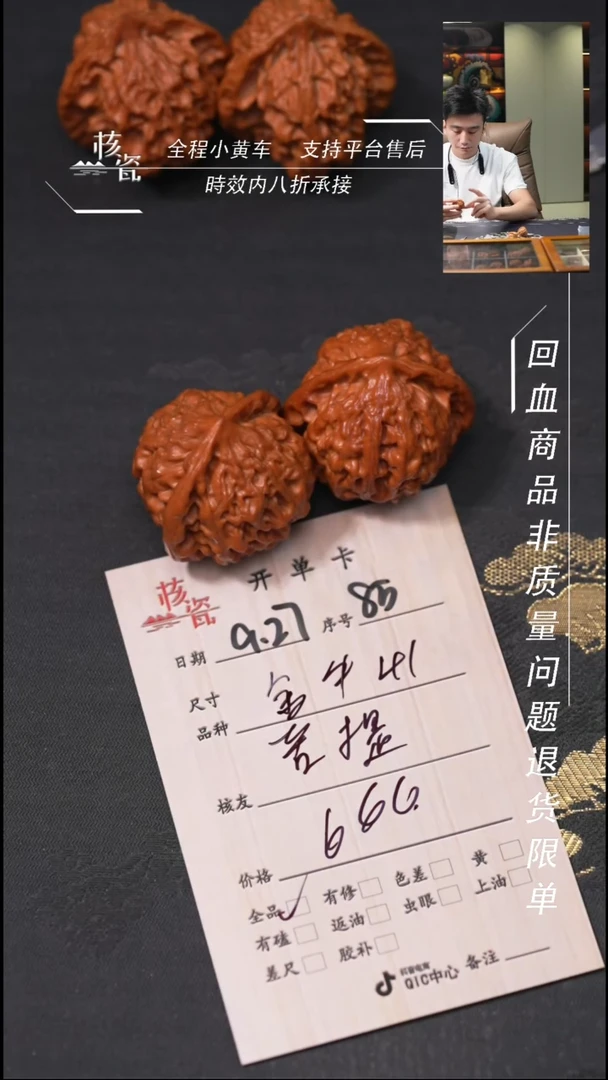 核瓷
全程小黄车 支持平台售后
時效内八折承接
回血商品非质量问题退货限单
核瓷
开单卡
日期 9.27 序号 85
尺寸 金牛 41
品种 菩提
核友
价格 666.
全品 有修 色差 黄
有磕 返油 虫眼 上油
差尺 胶补
抖音电商
QIC中心 备注